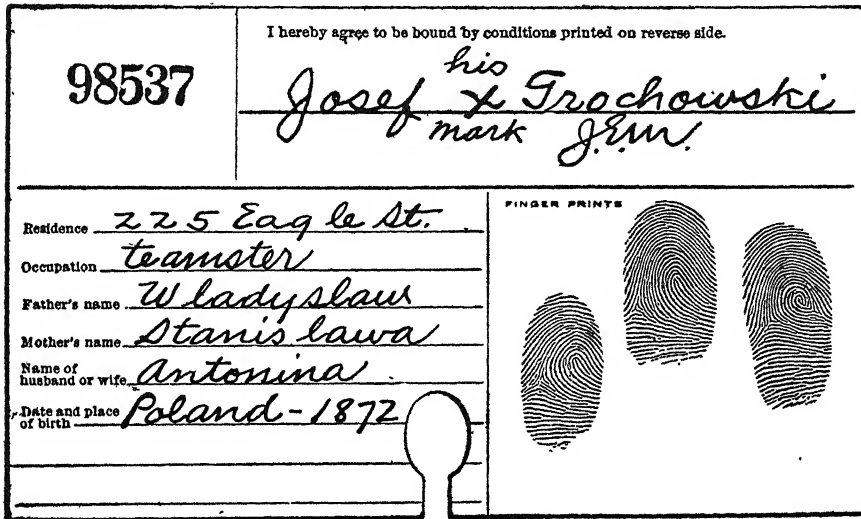 98537
I hereby agree to be bound by conditions printed on reverse side.
his
Josef x Grochowski
mark J.E.W.
FINGER PRINTS
Residence 225 Eagle St.
Occupation teamster
Father's name Wladyslaw
Mother's name Stanislawa
Name of
husband or wife Antonina
Date and place
of birth Poland - 1872